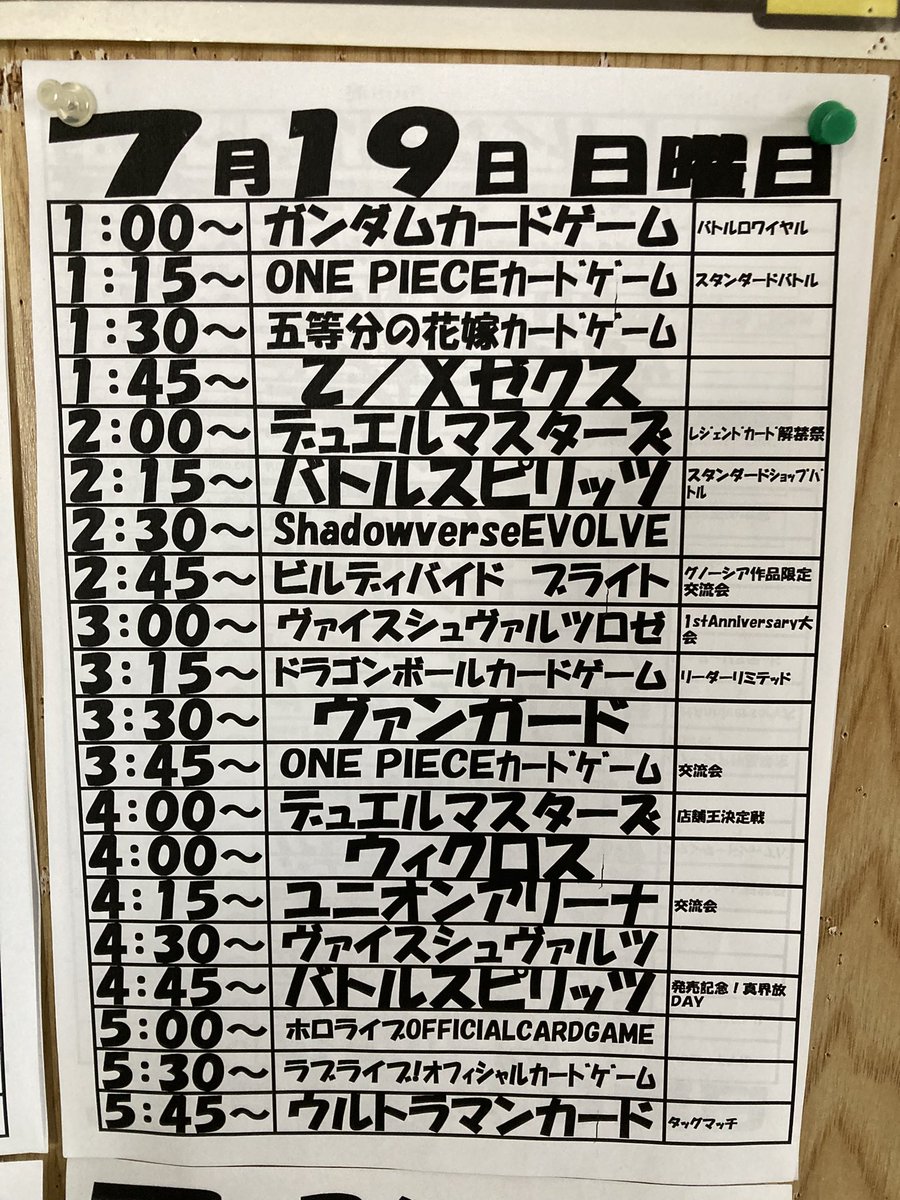 7月19日 日曜日
1:00～ ガンダムカードゲーム バトルロワイヤル
1:15～ ONE PIECEカードゲーム スタンダードバトル
1:30～ 五等分の花嫁カードゲーム
1:45～ Z/Xゼクス
2:00～ デュエルマスターズ レジェンドカード解禁祭
2:15～ バトルスピリッツ スタンダードショップバ
トル
2:30～ ShadowverseEVOLVE
2:45～ ビルディバイド ブライト グノーシア作品限定
交流会
3:00～ ヴァイスシュヴァルツロゼ 1stAnniversary大
会
3:15～ ドラゴンボールカードゲーム リーダーリミテッド
3:30～ ヴァンガード
3:45～ ONE PIECEカードゲーム 交流会
4:00～ デュエルマスターズ 店舗王決定戦
4:00～ ウィクロス
4:15～ ユニオンアリーナ 交流会
4:30～ ヴァイスシュヴァルツ
4:45～ バトルスピリッツ 発売記念！真界放
DAY
5:00～ ホロライブOFFICIALCARDGAME
5:30～ ラブライブ!オフィシャルカードゲーム
5:45～ ウルトラマンカード タッグマッチ